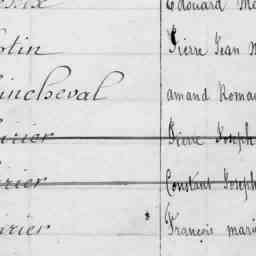 Edouard
tin Pierre Jean
incheval amand Roma
irier Pierre Joseph
rier Constant Joseph
irier François mari